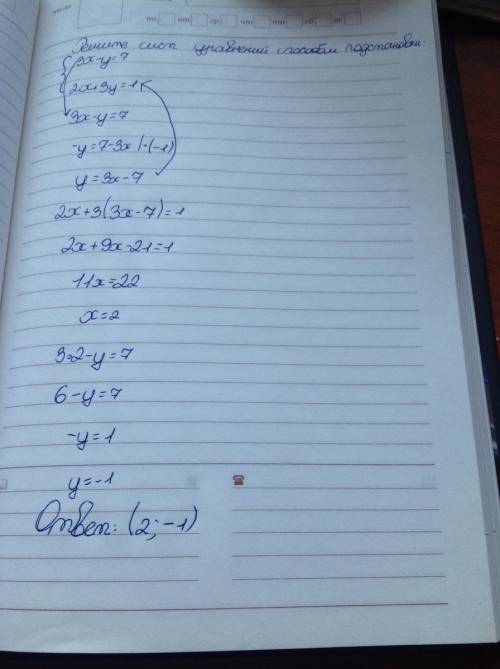 Решите сист уравнений способом подстановки:
3x-y=7
2x+3y=1
3x-y=7
-y=7-3x |·(-1)
y=3x-7
2x+3(3x-7)=1
2x+9x-21=1
11x=22
x=2
3·2-y=7
6-y=7
-y=1
y=-1
Ответ: (2;-1)